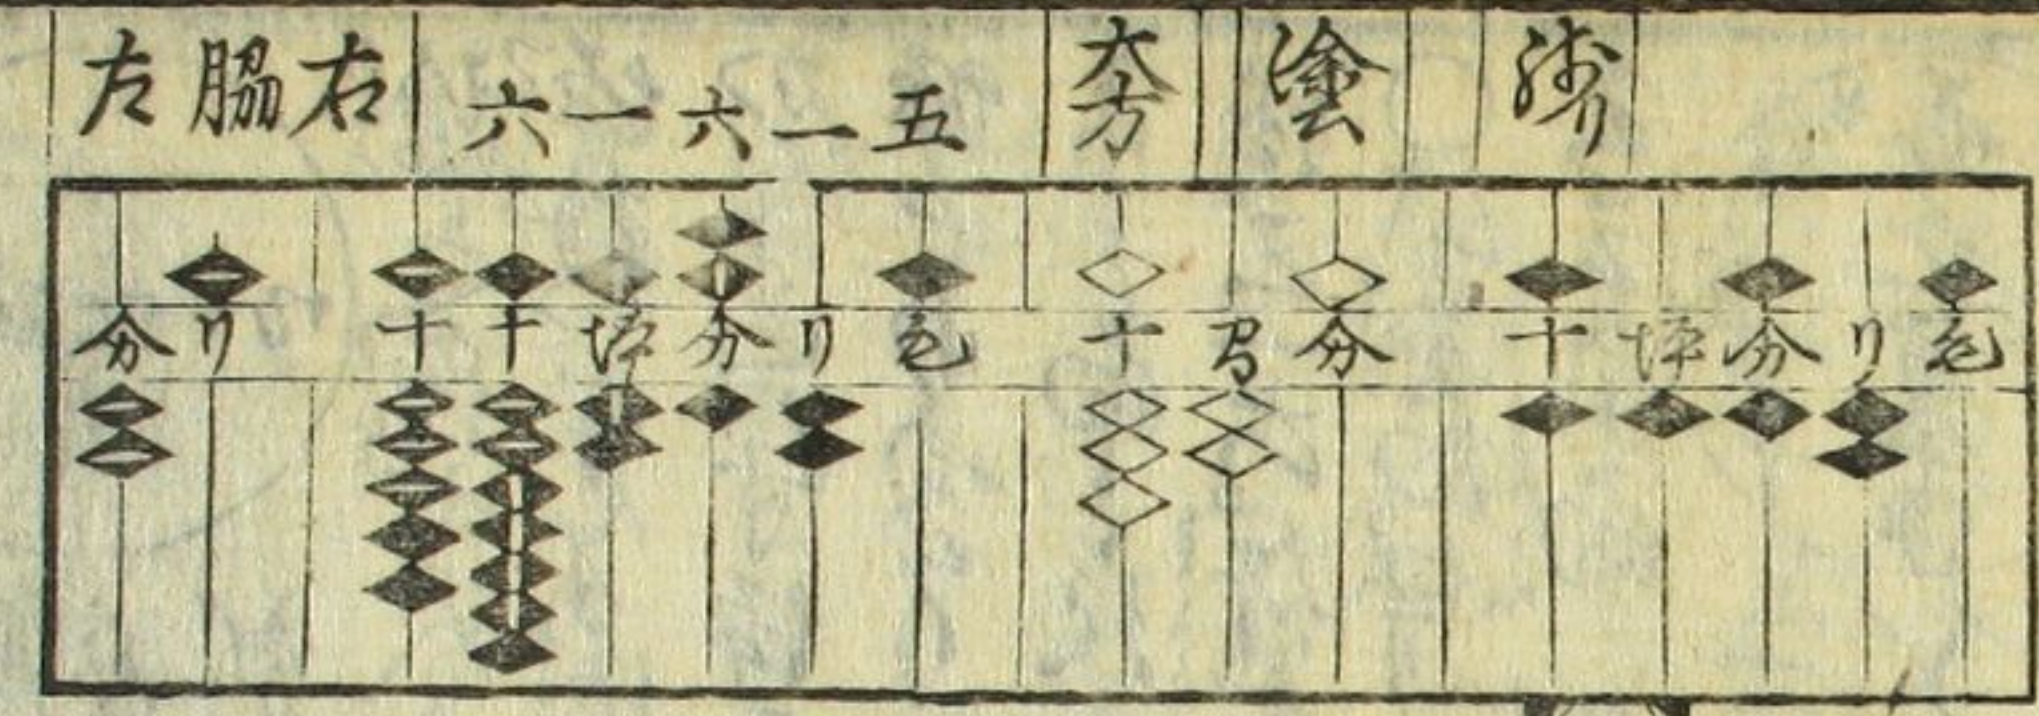 左 脇 右 六一六一五 大方 塗 残リ
分 リ 十 十 坪 分 リ 毛 十 間 分 十 坪 分 リ 毛